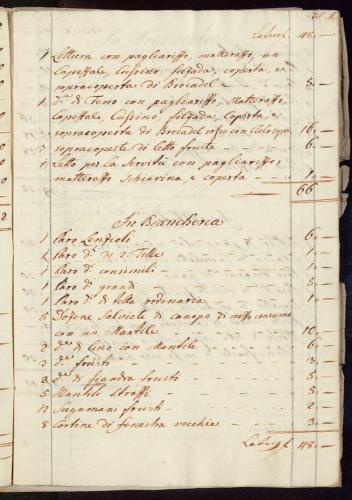 Latus L 48. —
1 Lettura con pagliariffo, matteraffo, un
Capeffale, Cuffino, folfada, coperta, e
sopracoperta di Brocadel - - 5. —
1 d.ª di Ferro con pagliariffo, Matteraffo,
Capeffale, Cuffino, folfada, Coperta, e
sopracoperta di Brocadel rosso con Cielo 16. —
sopracoperte di letto fruste - - 6. —
1 Letto per la Servitù con pagliariffo,
matteraffo Schiavina, e coperta - - 1. —
66
In Biancheria
1 Paro Lenzioli - - 6. —
1 Paro d.i di 2. Telle - - 1. —
1 Paro d.i consimili - - 1. —
1 Paro d.i grandi - - 5. —
1 Paro d.i di tella ordinaria - - 1. —
6 Dozene Salviete di canapo di mezo consumo
con un Mantile - - 10. —
2 d.e di lino con Mantile - - 6. —
3 d.e fruste - - 3. —
2 d.e di fiandra fruste - - 5. —
5 Mantili straffi - - 5. —
12 Sugamani frusti - - 2. —
8 Cortine di fenestra vecchie - - 3. —
Latus L 48. —